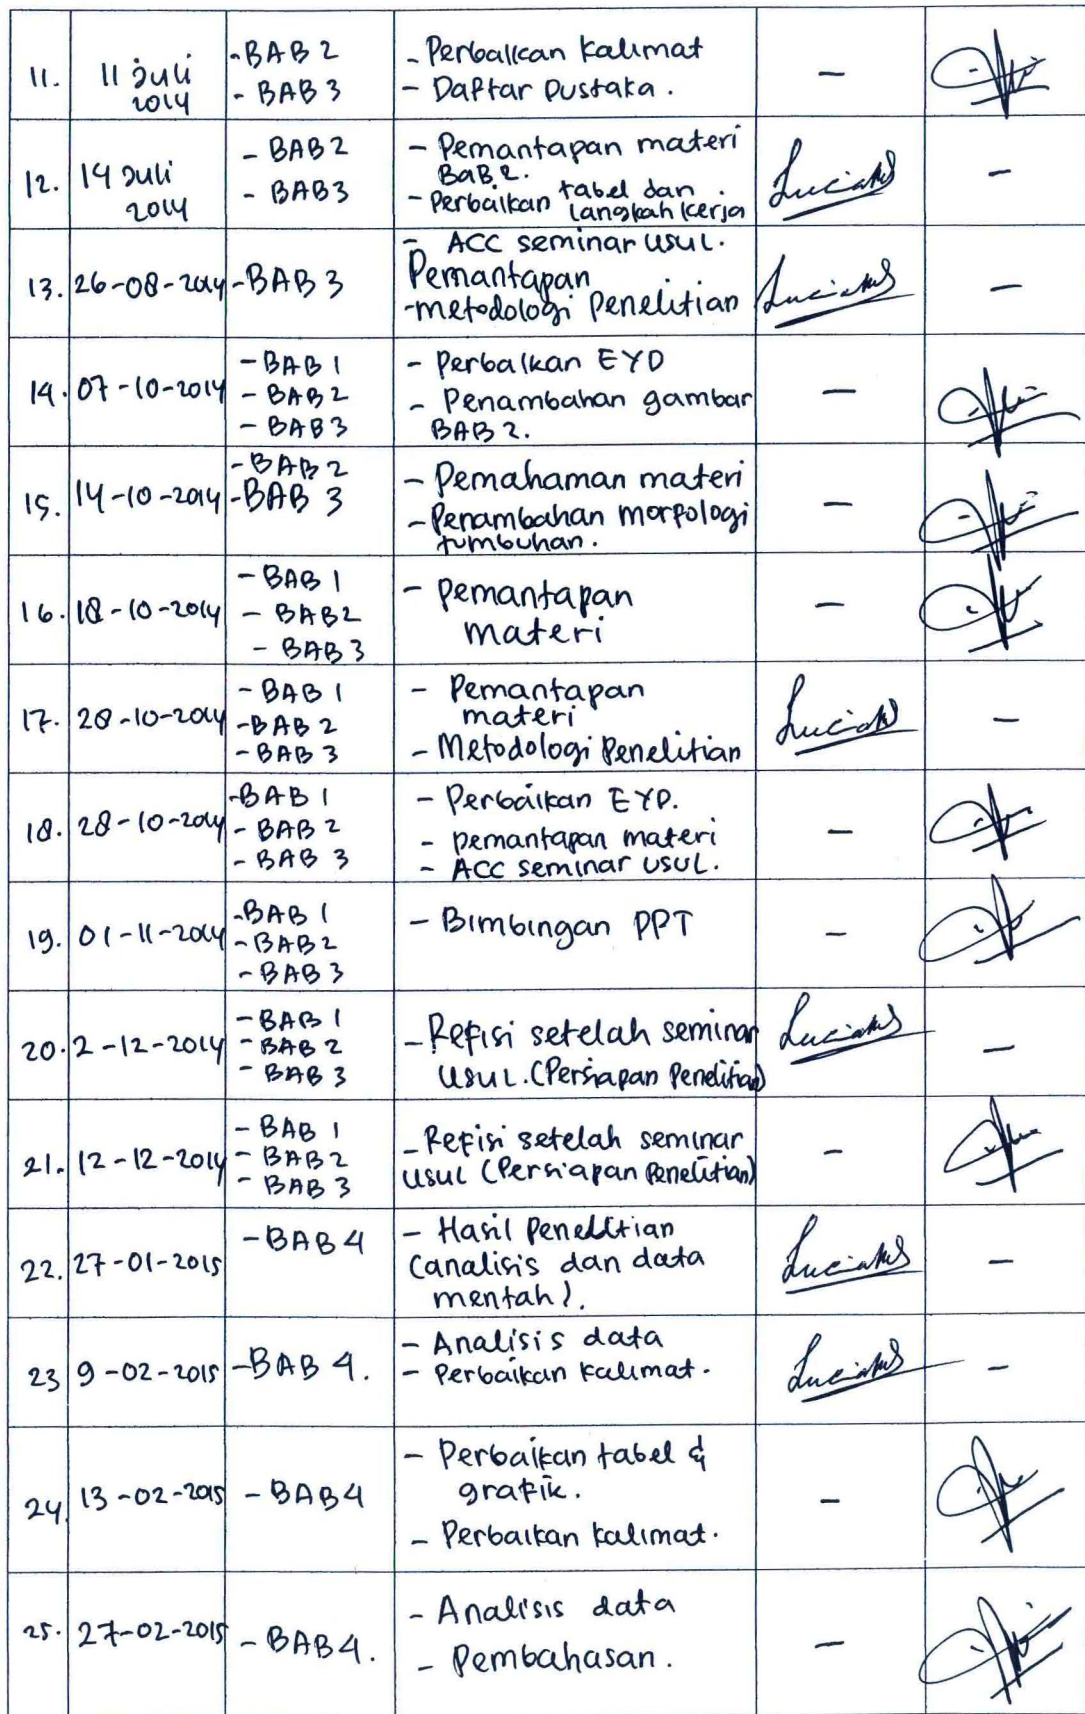 11. 11 Juli 2014 - BAB 2 - Perbaikan kalimat –
- BAB 3 - Daftar Pustaka.
12. 14 Juli 2014 - BAB 2 - Pemantapan materi BAB 2. Lucia –
- BAB 3 - Perbaikan tabel dan langkah kerja
13. 26-08-2014 - BAB 3 - ACC seminar usul.
Pemantapan
- metodologi Penelitian –
14. 07-10-2014 - BAB 1 - Perbaikan EYD –
- BAB 2 - Penambahan gambar
- BAB 3 BAB 2.
15. 14-10-2014 - BAB 2 - Pemahaman materi –
- BAB 3 - Penambahan morfologi
tumbuhan.
16. 18-10-2014 - BAB 1 - Pemantapan –
- BAB 2 materi
- BAB 3
17. 28-10-2014 - BAB 1 - Pemantapan
- BAB 2 materi
- BAB 3 - Metodologi Penelitian –
18. 28-10-2014 - BAB 1 - Perbaikan EYD. –
- BAB 2 - pemantapan materi
- BAB 3 - ACC seminar usul.
19. 01-11-2014 - BAB 1 - Bimbingan PPT –
- BAB 2
- BAB 3
20. 2-12-2014 - BAB 1 - Refisi setelah seminar
- BAB 2 usul. (Persiapan Penelitian) –
- BAB 3
21. 12-12-2014 - BAB 1 - Refisi setelah seminar –
- BAB 2 usul (Persiapan Penelitian)
- BAB 3
22. 27-01-2015 - BAB 4 - Hasil Penelitian
(analisis dan data
mentah). –
23 9-02-2015 - BAB 4. - Analisis data –
- Perbaikan kalimat.
24. 13-02-2015 - BAB 4 - Perbaikan tabel &
grafik. –
- Perbaikan kalimat.
25. 27-02-2015 - BAB 4. - Analisis data –
- Pembahasan.